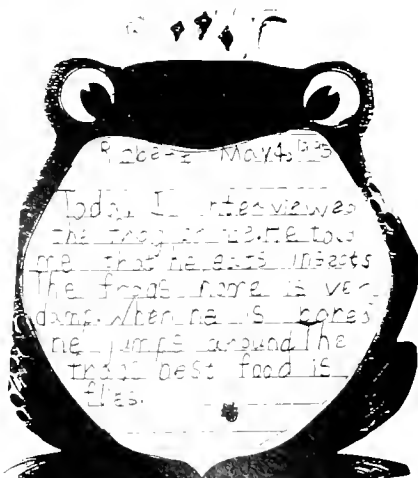 Robert May 4,
Today I interviewed
the frog He told
me that he eats insects
The frogs home is very
damp. When he is bored
he jumps around The
frogs best food is
flies.